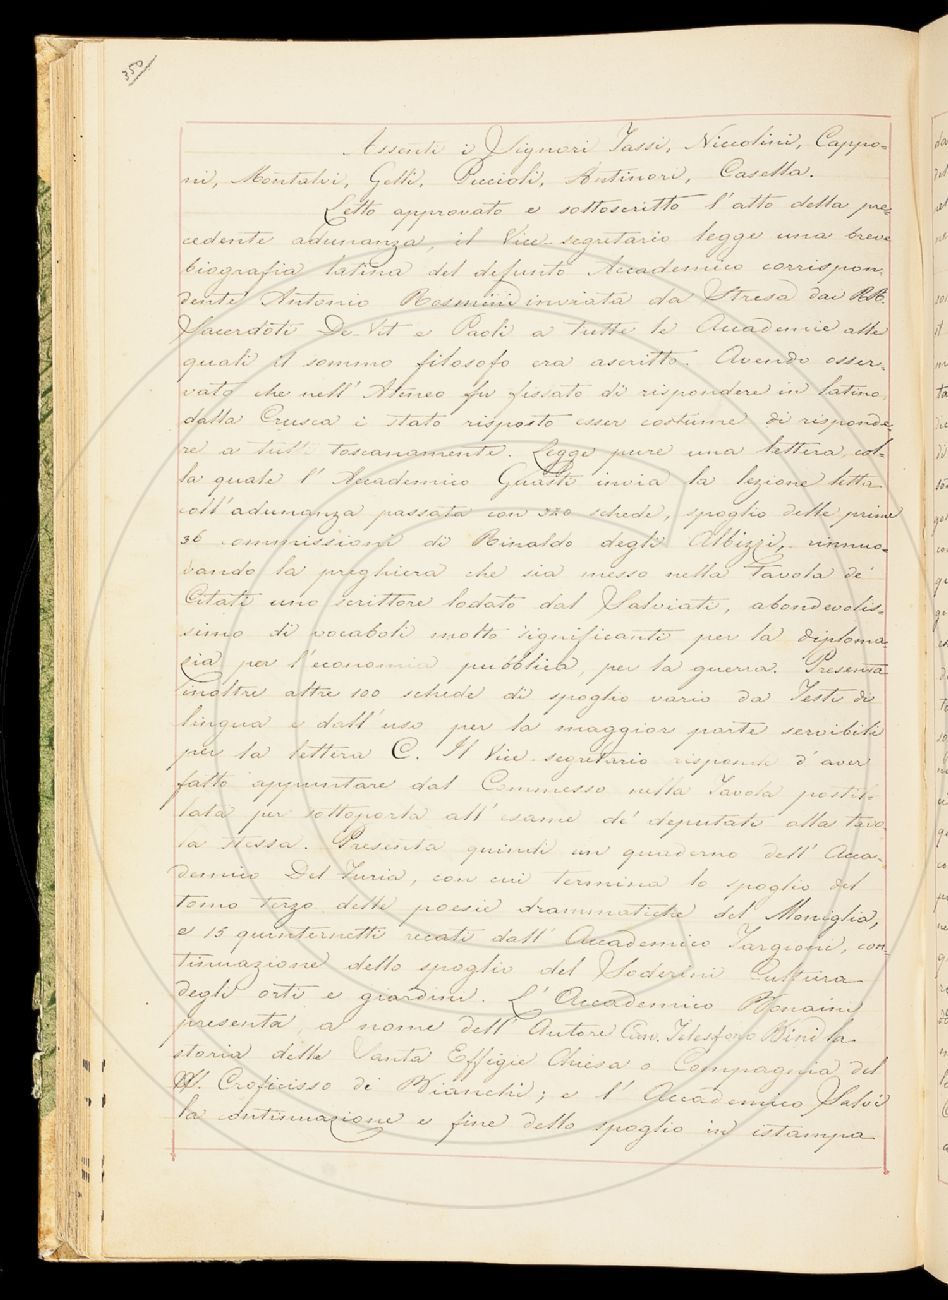 350
Assenti i Signori Tassi, Niccolini, Cappo=
ni, Montalvi, Gelli, Piccioli, Antinori, Casella.
Letto approvato e sottoscritto l'atto della pre=
cedente adunanza, il Vice-segretario legge una breve
biografia latina del defunto Accademico corrispon=
dente Antonio Rosmini inviata da Stresa dai RR.
Sacerdoti De-Vit e Paoli a tutte le Accademie alle
quali il sommo filosofo era ascritto. Avendo osser=
vato che nell'Ateneo fu fissato di rispondere in latino,
dalla Crusca è stato risposto esser costume di risponde=
re a tutti toscanamente. Legge pure una lettera, col=
la quale l'Accademico Guasti invia la lezione letta
coll'adunanza passata con 320 schede, spoglio delle prime
36 commissioni di Rinaldo degli Albizzi, rinnuo=
vando la preghiera che sia messo nella Tavola de'
Citati uno scrittore lodato dal Salviati, abondevolis=
simo di vocaboli molto significanti per la diploma=
zia per l'economia pubblica, per la guerra. Presenta
inoltre altre 100 schede di spoglio vario da Testi di
lingua e dall'uso per la maggior parte servibili
per la lettera C. Il Vice-segretario risponde d'aver
fatto appuntare dal Commesso nella Tavola postil=
lata per sottoporla all'esame de' deputati alla tavo=
la stessa. Presenta quindi un quaderno dell'Acca=
demico Del Furia, con cui termina lo spoglio del
tomo terzo delle poesie drammatiche del Moniglia,
e 15 quinternetti recati dall'Accademico Targioni, con=
tinuazione dello spoglio del Soderini Cultura
degli orti e giardini. L'Accademico Bonaini
presenta, a nome dell'Autore Can. Telesforo Bini la
storia della Santa Effigie Chiesa e Compagnia del
SS. Crocifisso di Bianchi; e l'Accademico Salvi
la continuazione e fine dello spoglio in istampa